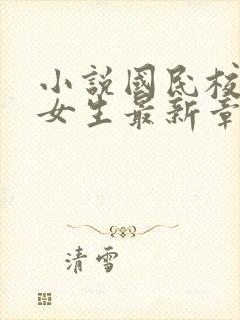 小說國民校
女生最新章
清雪